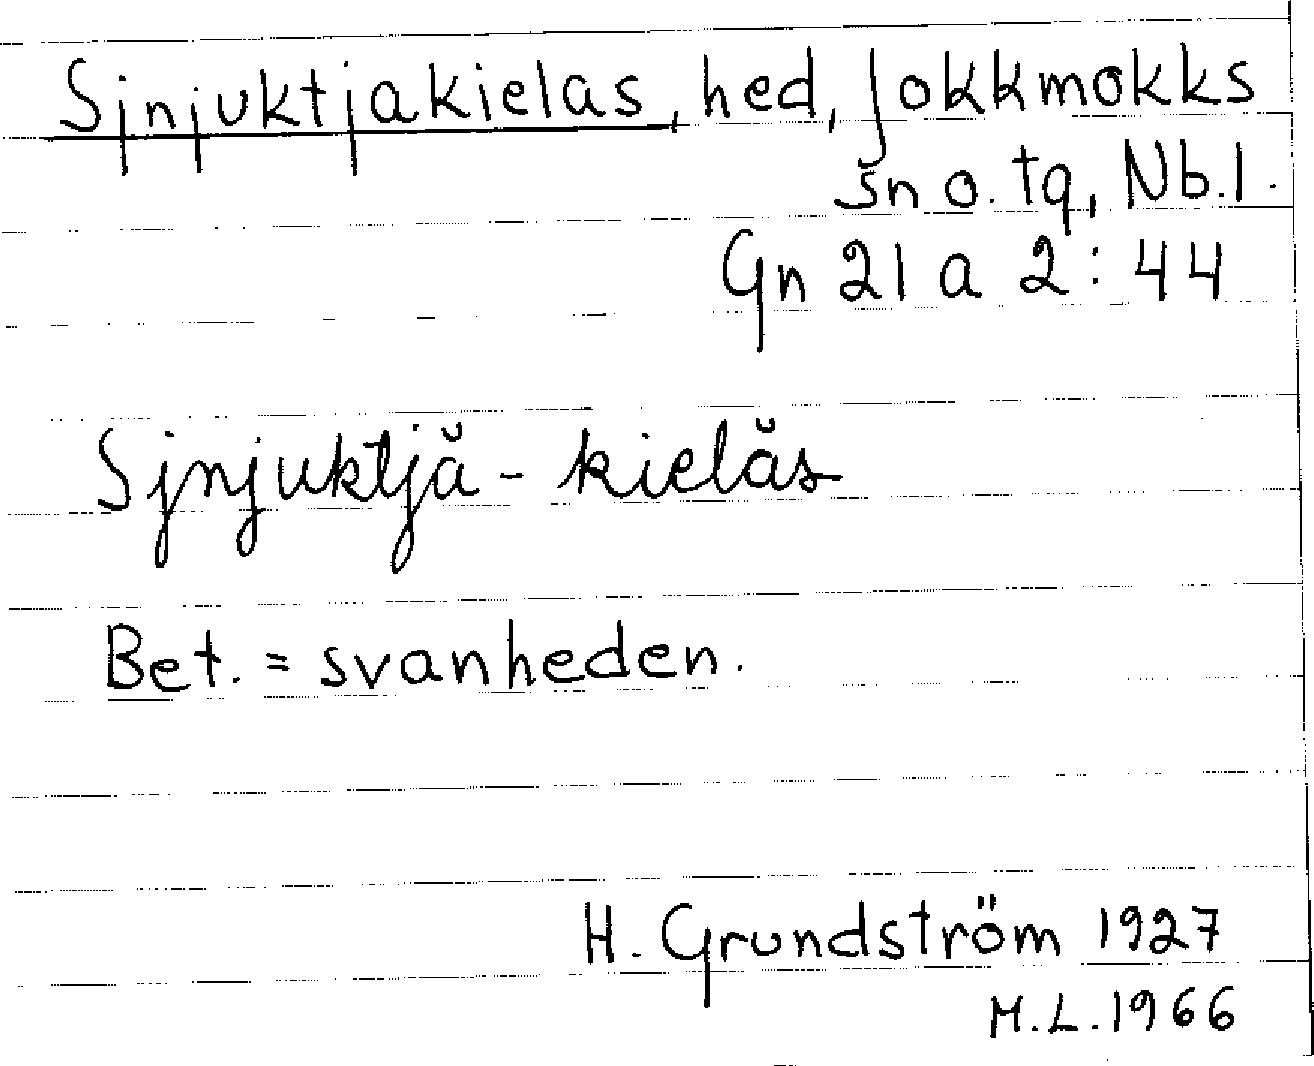 Sjnjuktjakielas, hed, Jokkmokks
sn o. tg, Nb.l.
Gn 21 a 2:44
Sjnjuktjă-kielăs
Bet. = svanheden.
H. Grundström 1927
M.L. 1966